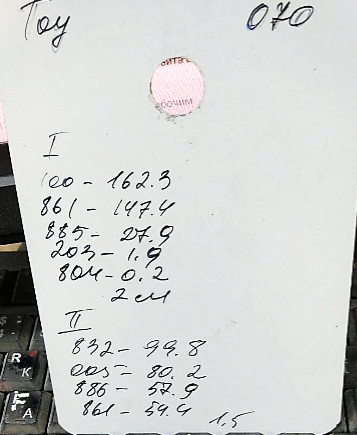 Тоу 070
бочим
I
100 - 162.3
861 - 147.4
885 - 27.9
203 - 1.9
804 - 0.2
2 см
II
832 - 99.8
005 - 80.2
886 - 57.9
861 - 54.4
1,5
R
K
A